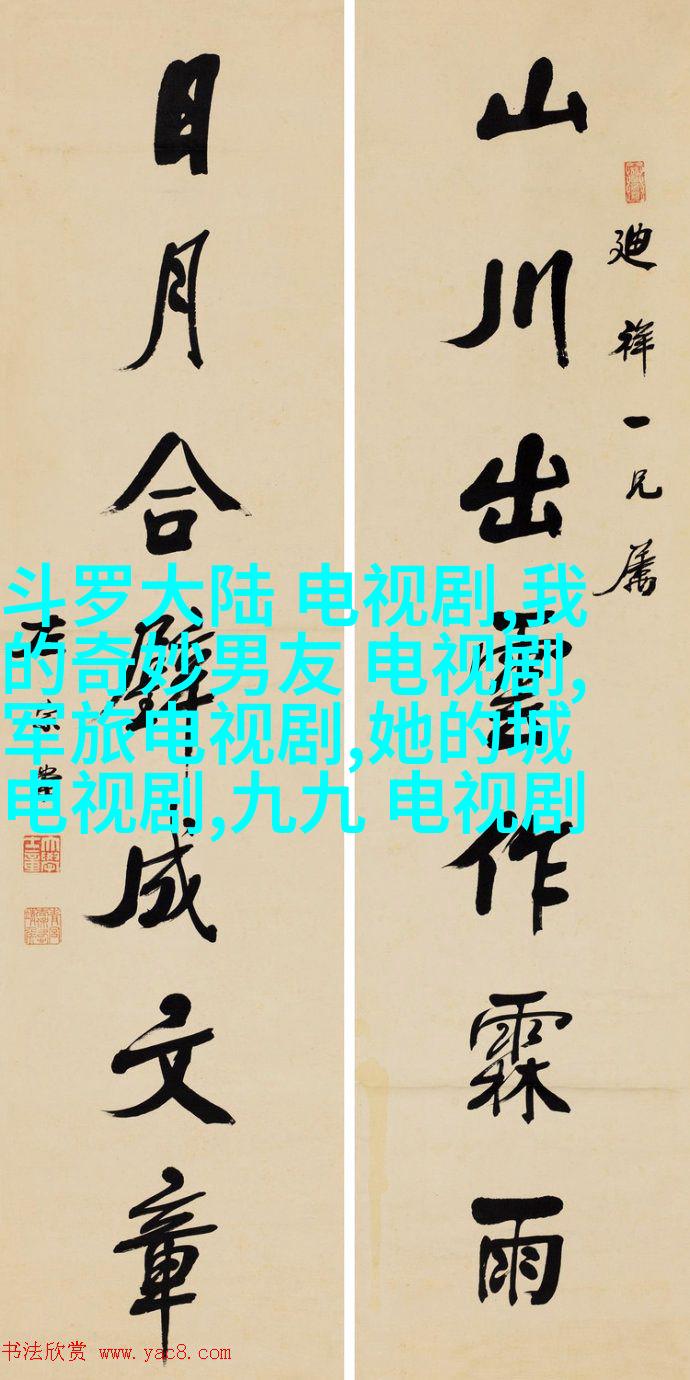 山川出雲作霖雨
廸祥一兄屬
日月合璧成文章
左宗棠
斗罗大陆 电视剧,我
的奇妙男友 电视剧,
军旅电视剧,她的城
电视剧,九九 电视剧
书法欣赏 www.yac8.com